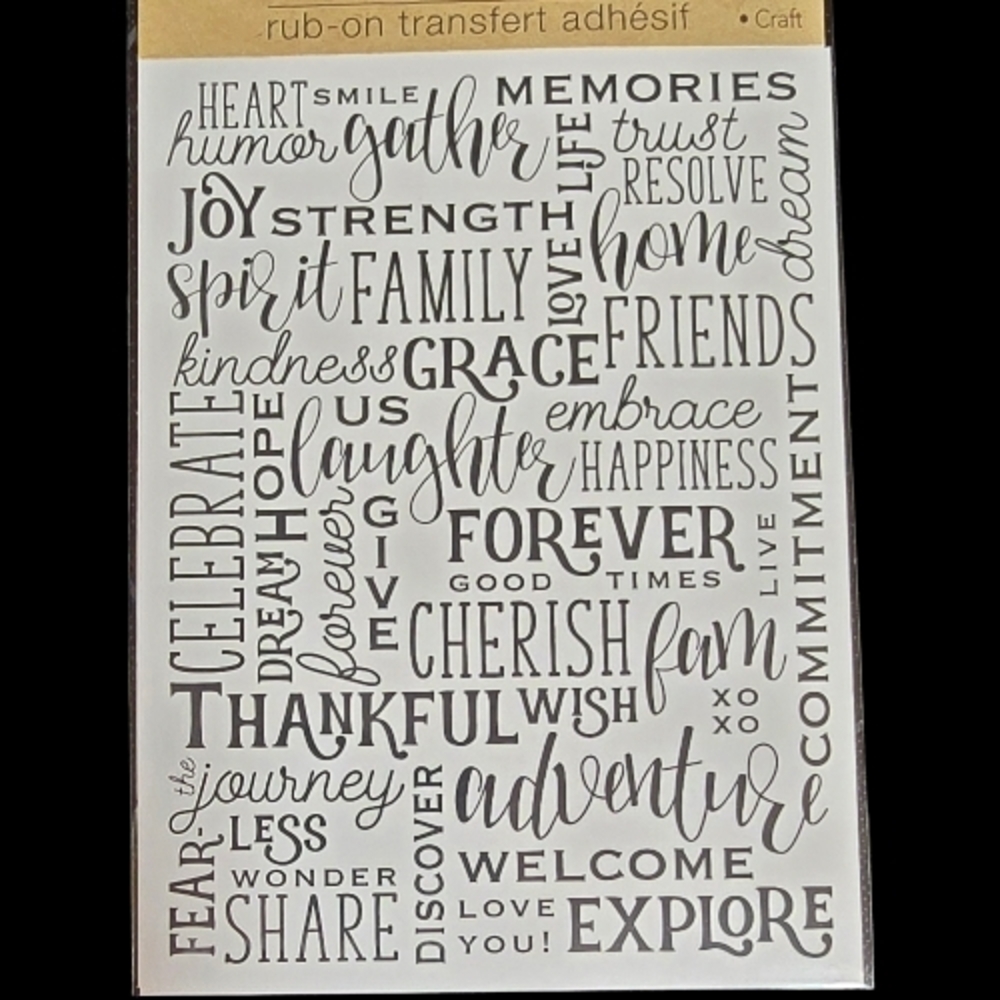 rub-on transfert adhésif • Craft
HEART SMILE MEMORIES
humor gather LIFE trust
RESOLVE dream
JOY STRENGTH home
spirit FAMILY LOVE FRIENDS
kindness GRACE
CELEBRATE HOPE US embrace COMMITMENT
laughter HAPPINESS
DREAM H forever GIVE FOREVER LIVE
GOOD TIMES
CHERISH fam
THANKFUL WISH XO
XO
the journey adventure
FEAR- LESS DISCOVER
WONDER WELCOME
SHARE LOVE EXPLORE
YOU!